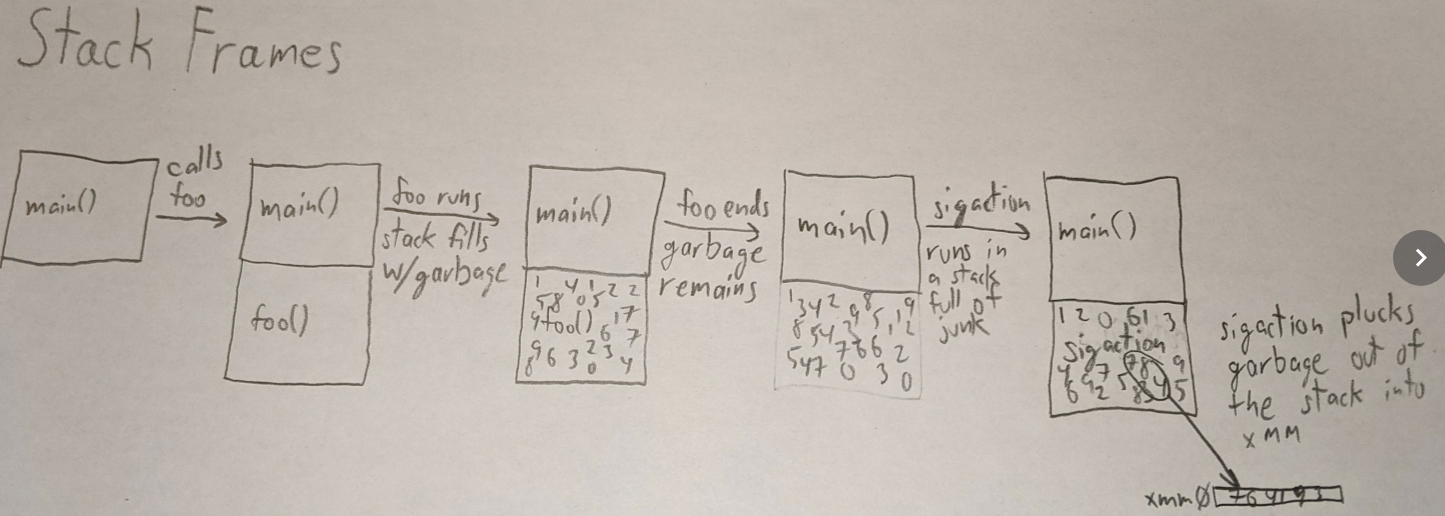 Stack Frames
main()
calls
foo
main()
foo()
foo runs
stack fills
w/garbage
main()
1 4 1 2 2
5 8 0 5
9 foo() 17
6 7
9 6 3 2 3
8 0 4
foo ends
garbage
remains
main()
1 3 4 2 9 8 5 1 9
8 5 4 2 1 2
7 8 6 2
5 4 7 0 3 0
sigaction
runs in
a stack
full of
junk
main()
1 2 0 6 1 3
sigaction
4 9 7 7 8 9
6 2 5 8 9 5
sigaction plucks
garbage out of
the stack into
xMM
xmm0